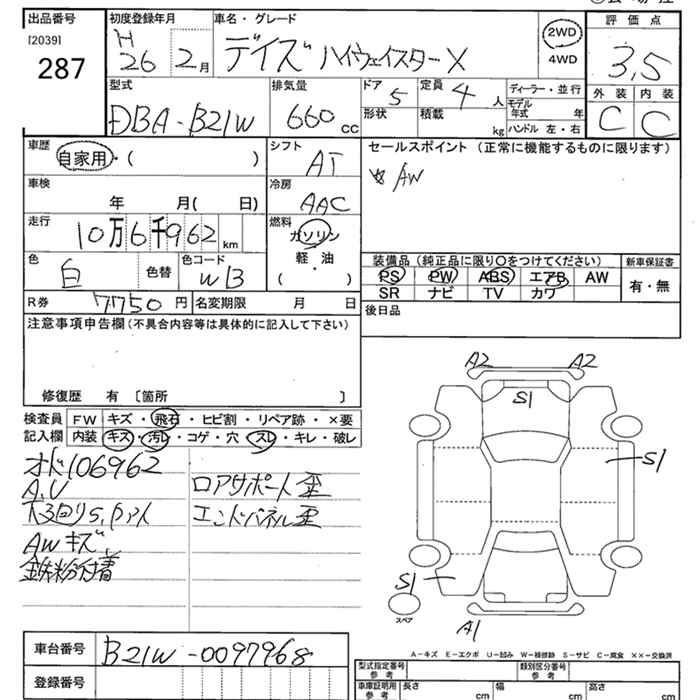 出品番号
[2039]
287
初度登録年月
H
26 2月
車名・グレード
デイズ ハイウェイスターX
2WD
4WD
評 価 点
3.5
外 装 内 装
C C
型式
DBA-B21W
排気量
660 cc
ドア 5
形状
定員 4 人
積載 kg
ディーラー・並行
モデル
年式 年
ハンドル 左・右
車歴
自家用・( )
シフト
AT
セールスポイント (正常に機能するものに限ります)
AW
車検
年 月( 日)
冷房
AAC
走行
10万6千962 km
燃料
ガソリン
軽・油
( )
色
白 色替
色コード
WB
装備品 (純正品に限り〇をつけてください)
PS PW ABS エアB AW
SR ナビ TV カワ
新車保証書
有・無
R券 7750 円
名変期限 月 日
後日品
注意事項申告欄 (不具合内容等は具体的に記入して下さい)
修復歴 有 〔箇所 〕
検査員
記入欄
FW キズ・飛石・ヒビ割・リペア跡・×要
内装 キズ・汚レ・コゲ・穴・スレ・キレ・破レ
オド106962
A.U
下回りS,Pアト
AWキズ
鉄粉付着
ロアサポート歪
エンドパネル歪
A2 A2
S1
S1
S1
スペア
A1
A-キズ E-エクボ U-凹み W-補修跡 S-サビ C-腐食 ××-交換済
車台番号
B21W-0097968
登録番号
型式指定番号
参考
類別区分番号
参考
車庫証明用
参考
長さ cm
幅 cm
高さ cm